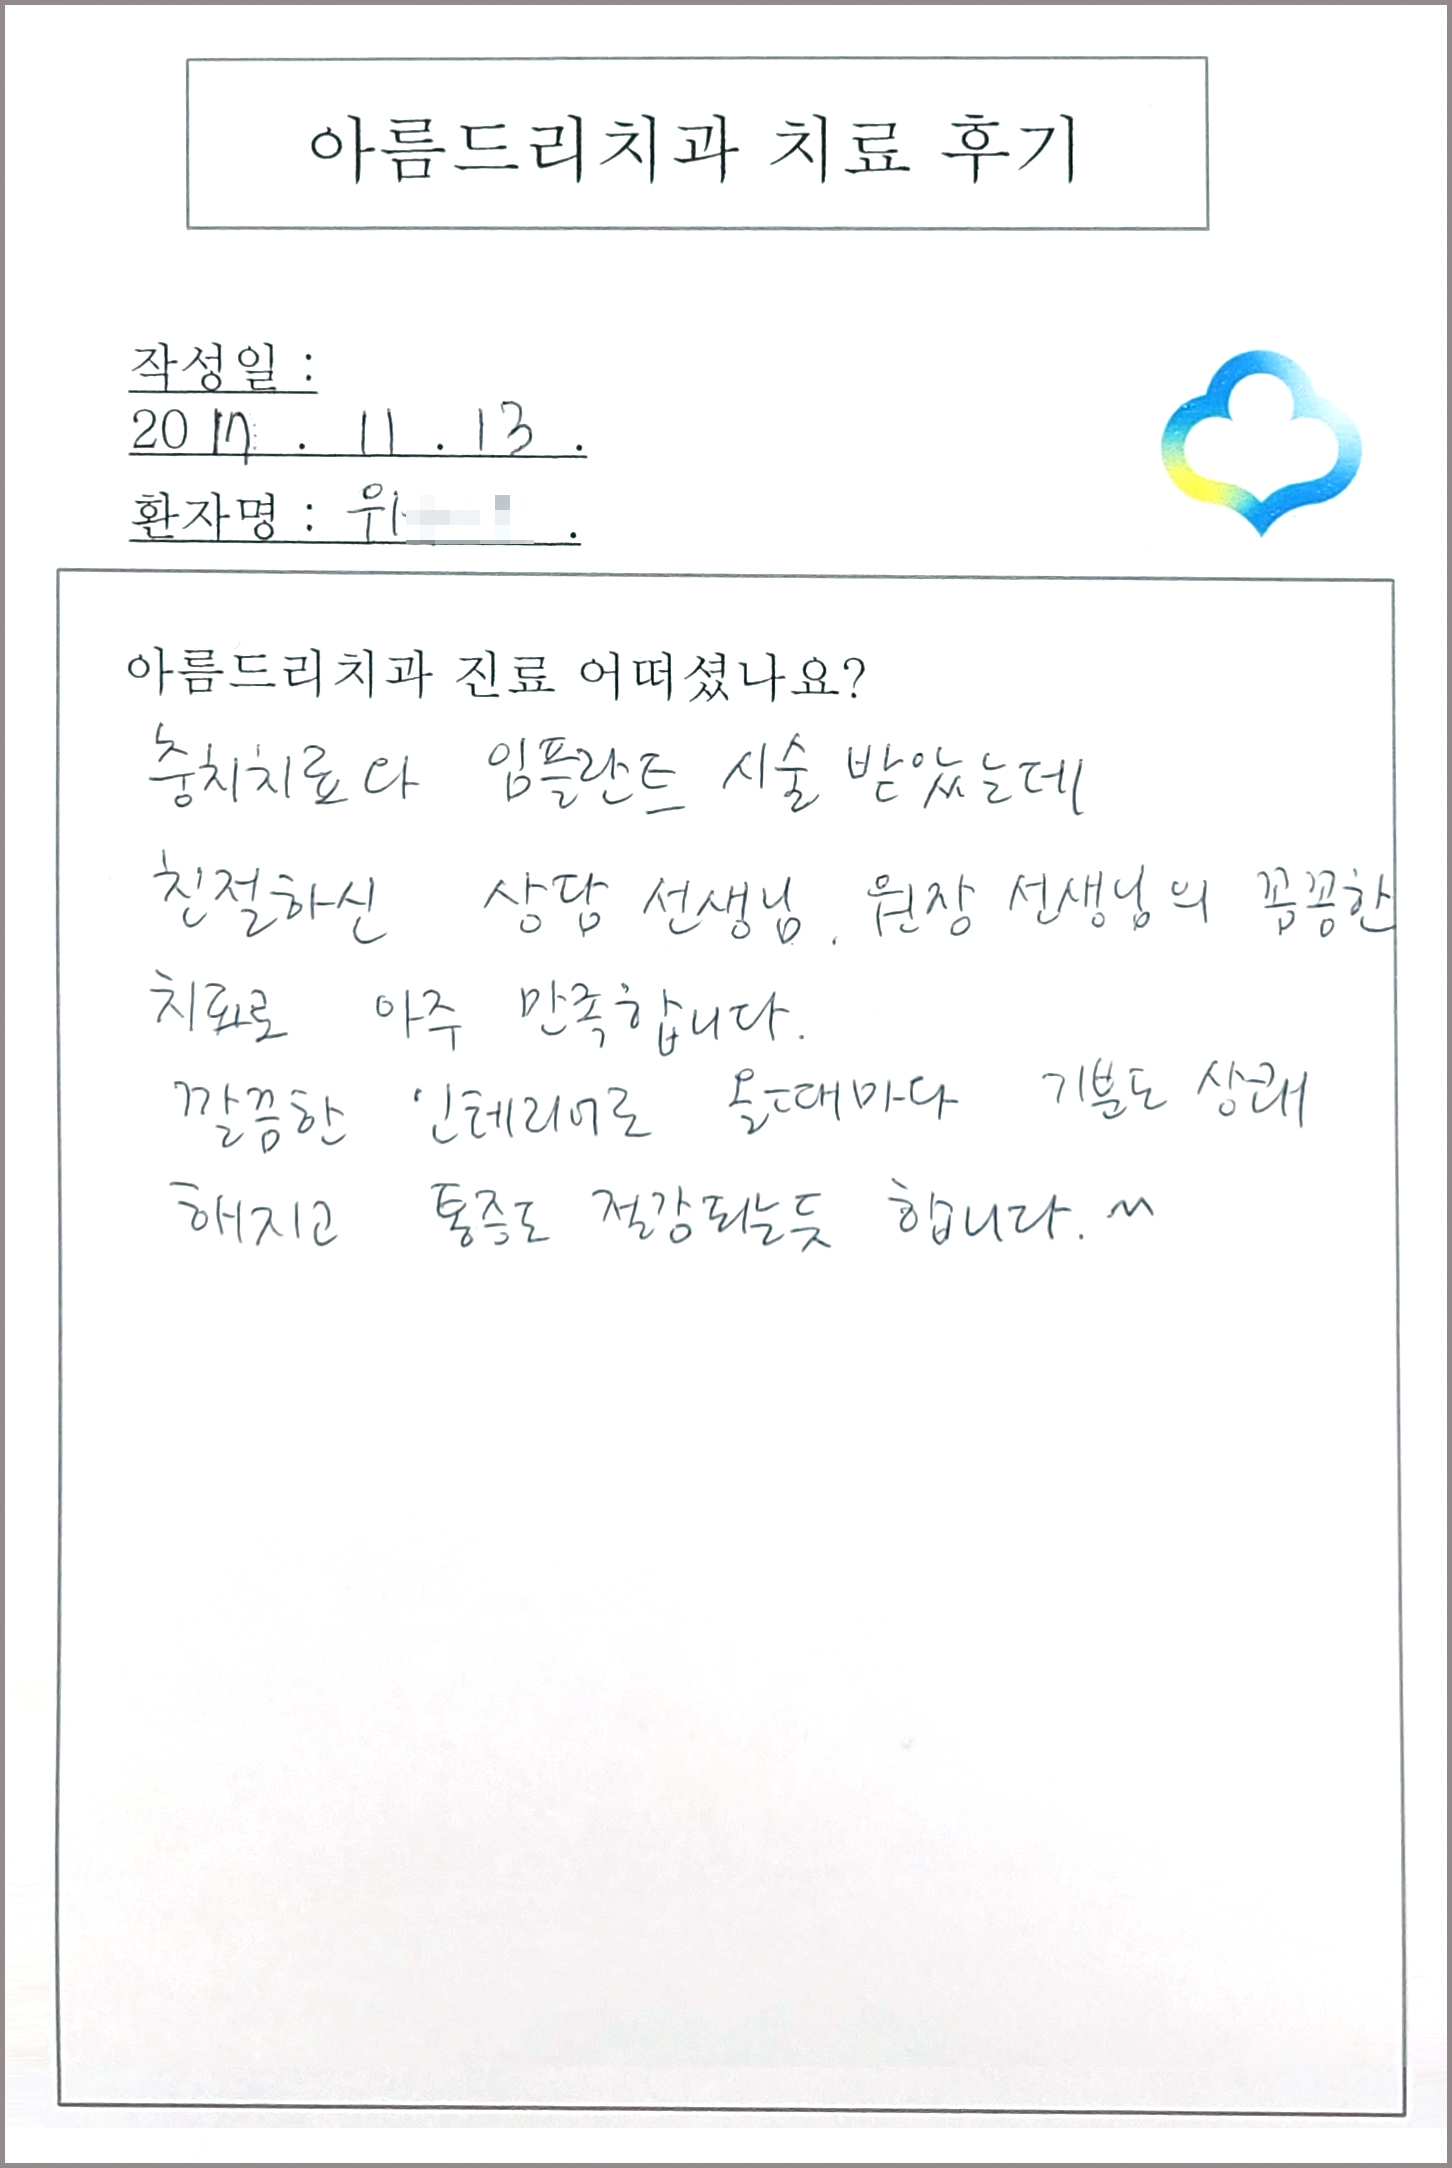 아름드리치과 치료 후기
작성일 :
2017 . 11 . 13 .
환자명 : 위 .
아름드리치과 진료 어떠셨나요?
충치치료다 임플란트 시술 받았는데
친절하신 상담 선생님, 원장 선생님의 꼼꼼한
치료로 아주 만족합니다.
깔끔한 인테리어로 올때마다 기분도 상쾌
해지고 통증도 절감되는듯 합니다. ^^